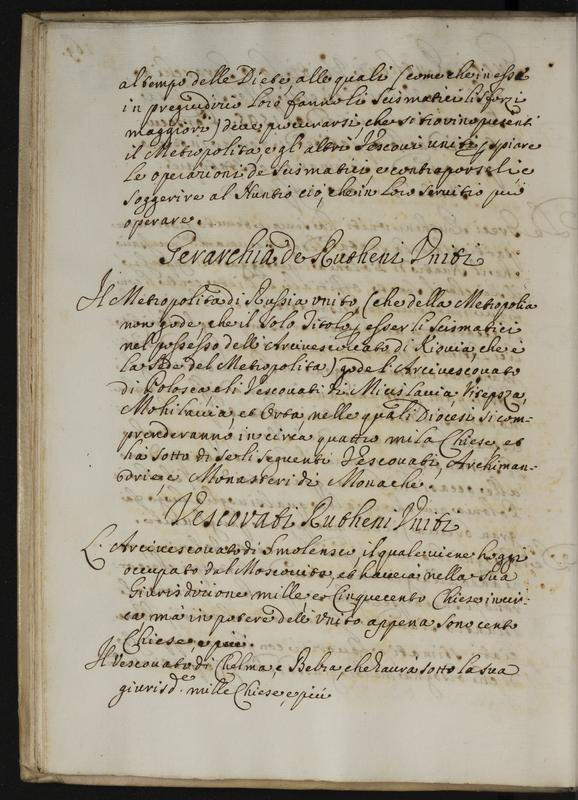 al tempo delle Diete, alle quali (come che in esse
in pregiudicio loro fanno li Scismatici li sforzi
maggiori) deve procurarsi, che si trovino presenti
il Metropolita, e gl'altri Vescovi uniti, spiare
le operazioni de Scismatici, e contraporseli, e
soggerire al Nuntio ciò, che in loro servitio può
operare.
Gerarchia de Rutheni Uniti
Il Metropolita di Russia unito (che della Metropolia
non gode, che il solo Titolo, esser li Scismatici
nel possesso dell'Arcivescovato di Kiovia, che è
la Sede del Metropolita) gode l'Arcivescovato
di Polosca, e li Vescovati di Micislavia, Vitepsza,
Mohilavia, et Orsa, nelle quali Diocesi si com-
prenderanno in circa quattro mila Chiese, et
ha sotto di se li seguenti Vescovati, Archiman-
drie, e Monasteri di Monache.
Vescovati Rutheni Uniti
L'Arcivescovato di Smolensco il quale viene hoggi
occupato dal Moscovita, et haveva nella sua
Giurisdizione mille, et Cinquecento Chiese incir-
ca, ma in potere dell'Unito appena sono cento
Chiese, e più.
Il Vescovato di Chelma, e Belza, che haurà sotto la sua
giurisd.e mille Chiese, e più